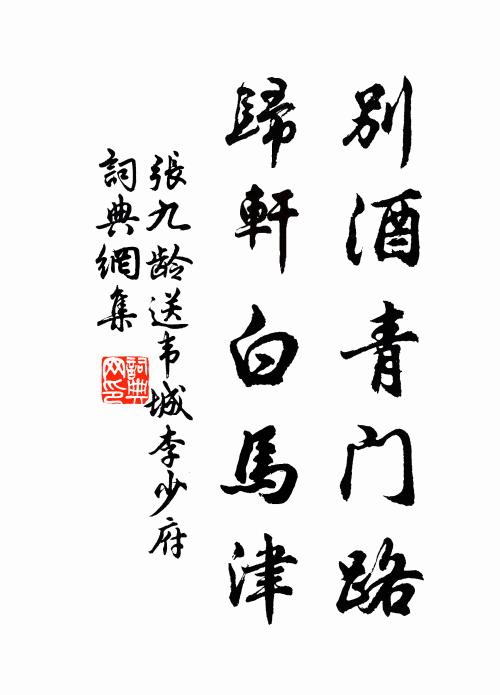 別酒青门路
歸軒白馬津
張九龄送韦城李少府
詞典網集
詞典网印